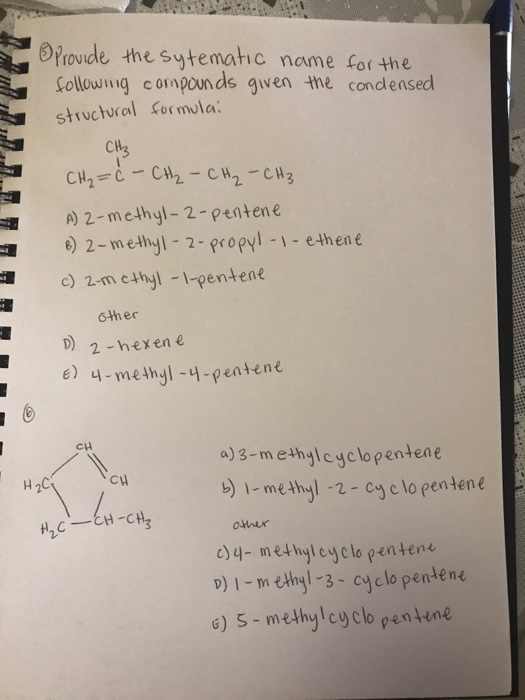 ⑤ Provide the sytematic name for the
following compounds given the condensed
structural formula:
CH3
CH2=C-CH2-CH2-CH3
A) 2-methyl-2-pentene
B) 2-methyl-2-propyl-1-ethene
c) 2-methyl-1-pentene
other
D) 2-hexene
E) 4-methyl-4-pentene
⑥
CH
H2C
CH
H2C-CH-CH3
a) 3-methylcyclopentene
b) 1-methyl-2-cyclopentene
other
c) 4-methylcyclopentene
D) 1-methyl-3-cyclopentene
G) 5-methylcyclopentene